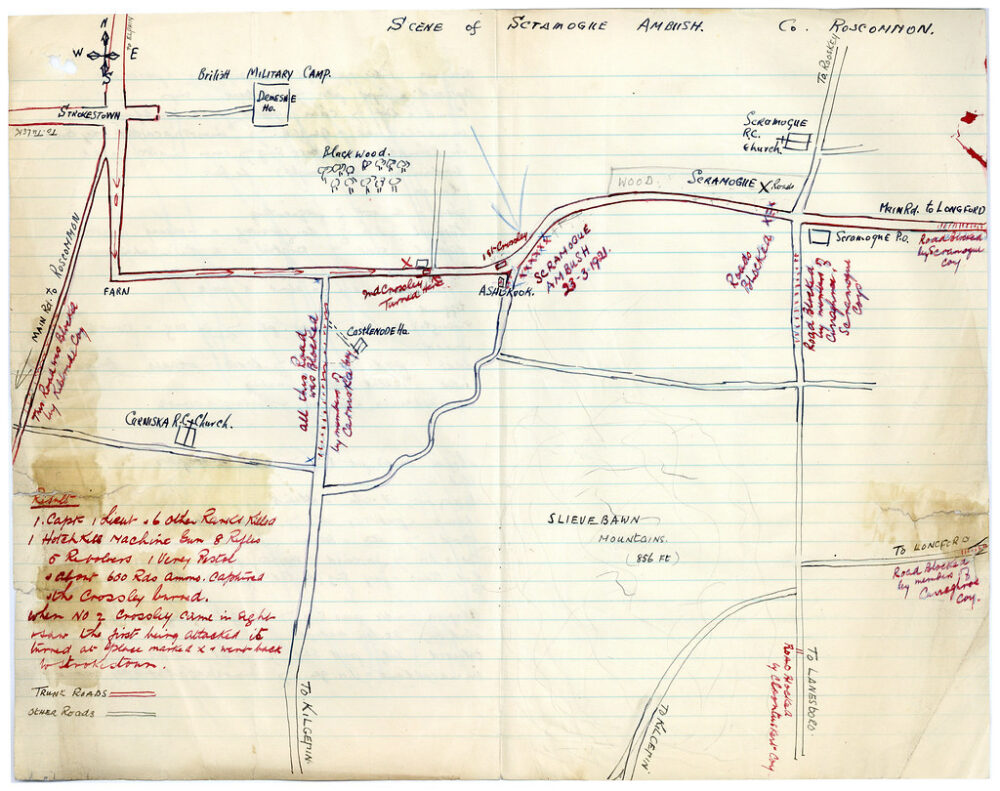 SCENE of SCRAMOGUE AMBUSH. Co. ROSCOMMON.
N
W E
S
British MILITARY CAMP.
DEMESNE
Ho.
STROKESTOWN
To TULSK
Black Wood.
To ROOSKEY
SCRAMOGUE
R.C.
Church.
WOOD.
SCRAMOGUE X Roads
MAIN Rd. to LONGFORD
Road Blocked
by Scramogue
Coy
Scramogue P.O.
1st Crossley
X
2nd Crossley
Turned here
ASHBROOK.
SCRAMOGUE
AMBUSH
23-3-1921.
Roads
Blocked
Road Blocked
by members of
Scramogue
Coys
FARN
MAIN Rd. to ROSCOMMON
This Road was Blocked
by Coy
CASTLENODE Ho.
all this Road
was Blocked
by members of
Carniska Coy
CARNISKA R.C. Church.
Result
1. Capt 1 Lieut & 6 Other Ranks Killed
1 HotchKill Machine Gun 8 Rifles
5 Revolvers 1 Verey Pistol
& about 600 Rds ammo. Captured
& the Crossley burned.
When NO 2 Crossley came in sight
& saw the first being attacked it
turned at place marked X & went back
to Strokestown.
TRUNK ROADS
OTHER ROADS
SLIEVEBAWN
MOUNTAINS.
(856 FT)
To LONGFORD
Road Blocked
by members of
Coy.
To KILGEFIN
To KILGEFIN
ROAD Blocked
by Coy
To LANESBORO.